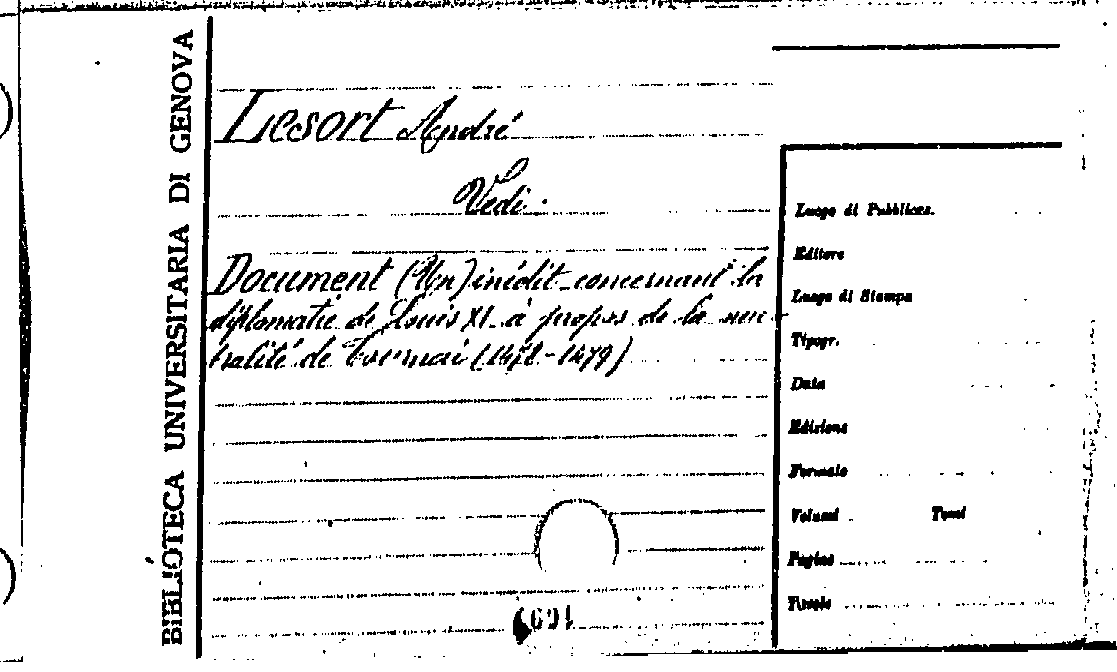 BIBLIOTECA UNIVERSITARIA DI GENOVA
Lesort André
Vedi.
Document (Un) inédit concernant la
diplomatie de Louis XI à propos de la neu-
tralité de Tournai (1478-1479)
Luogo di Pubblicaz.
Editore
Luogo di Stampa
Tipogr.
Data
Edizione
Formato
Volumi Tomi
Pagine
Tavole